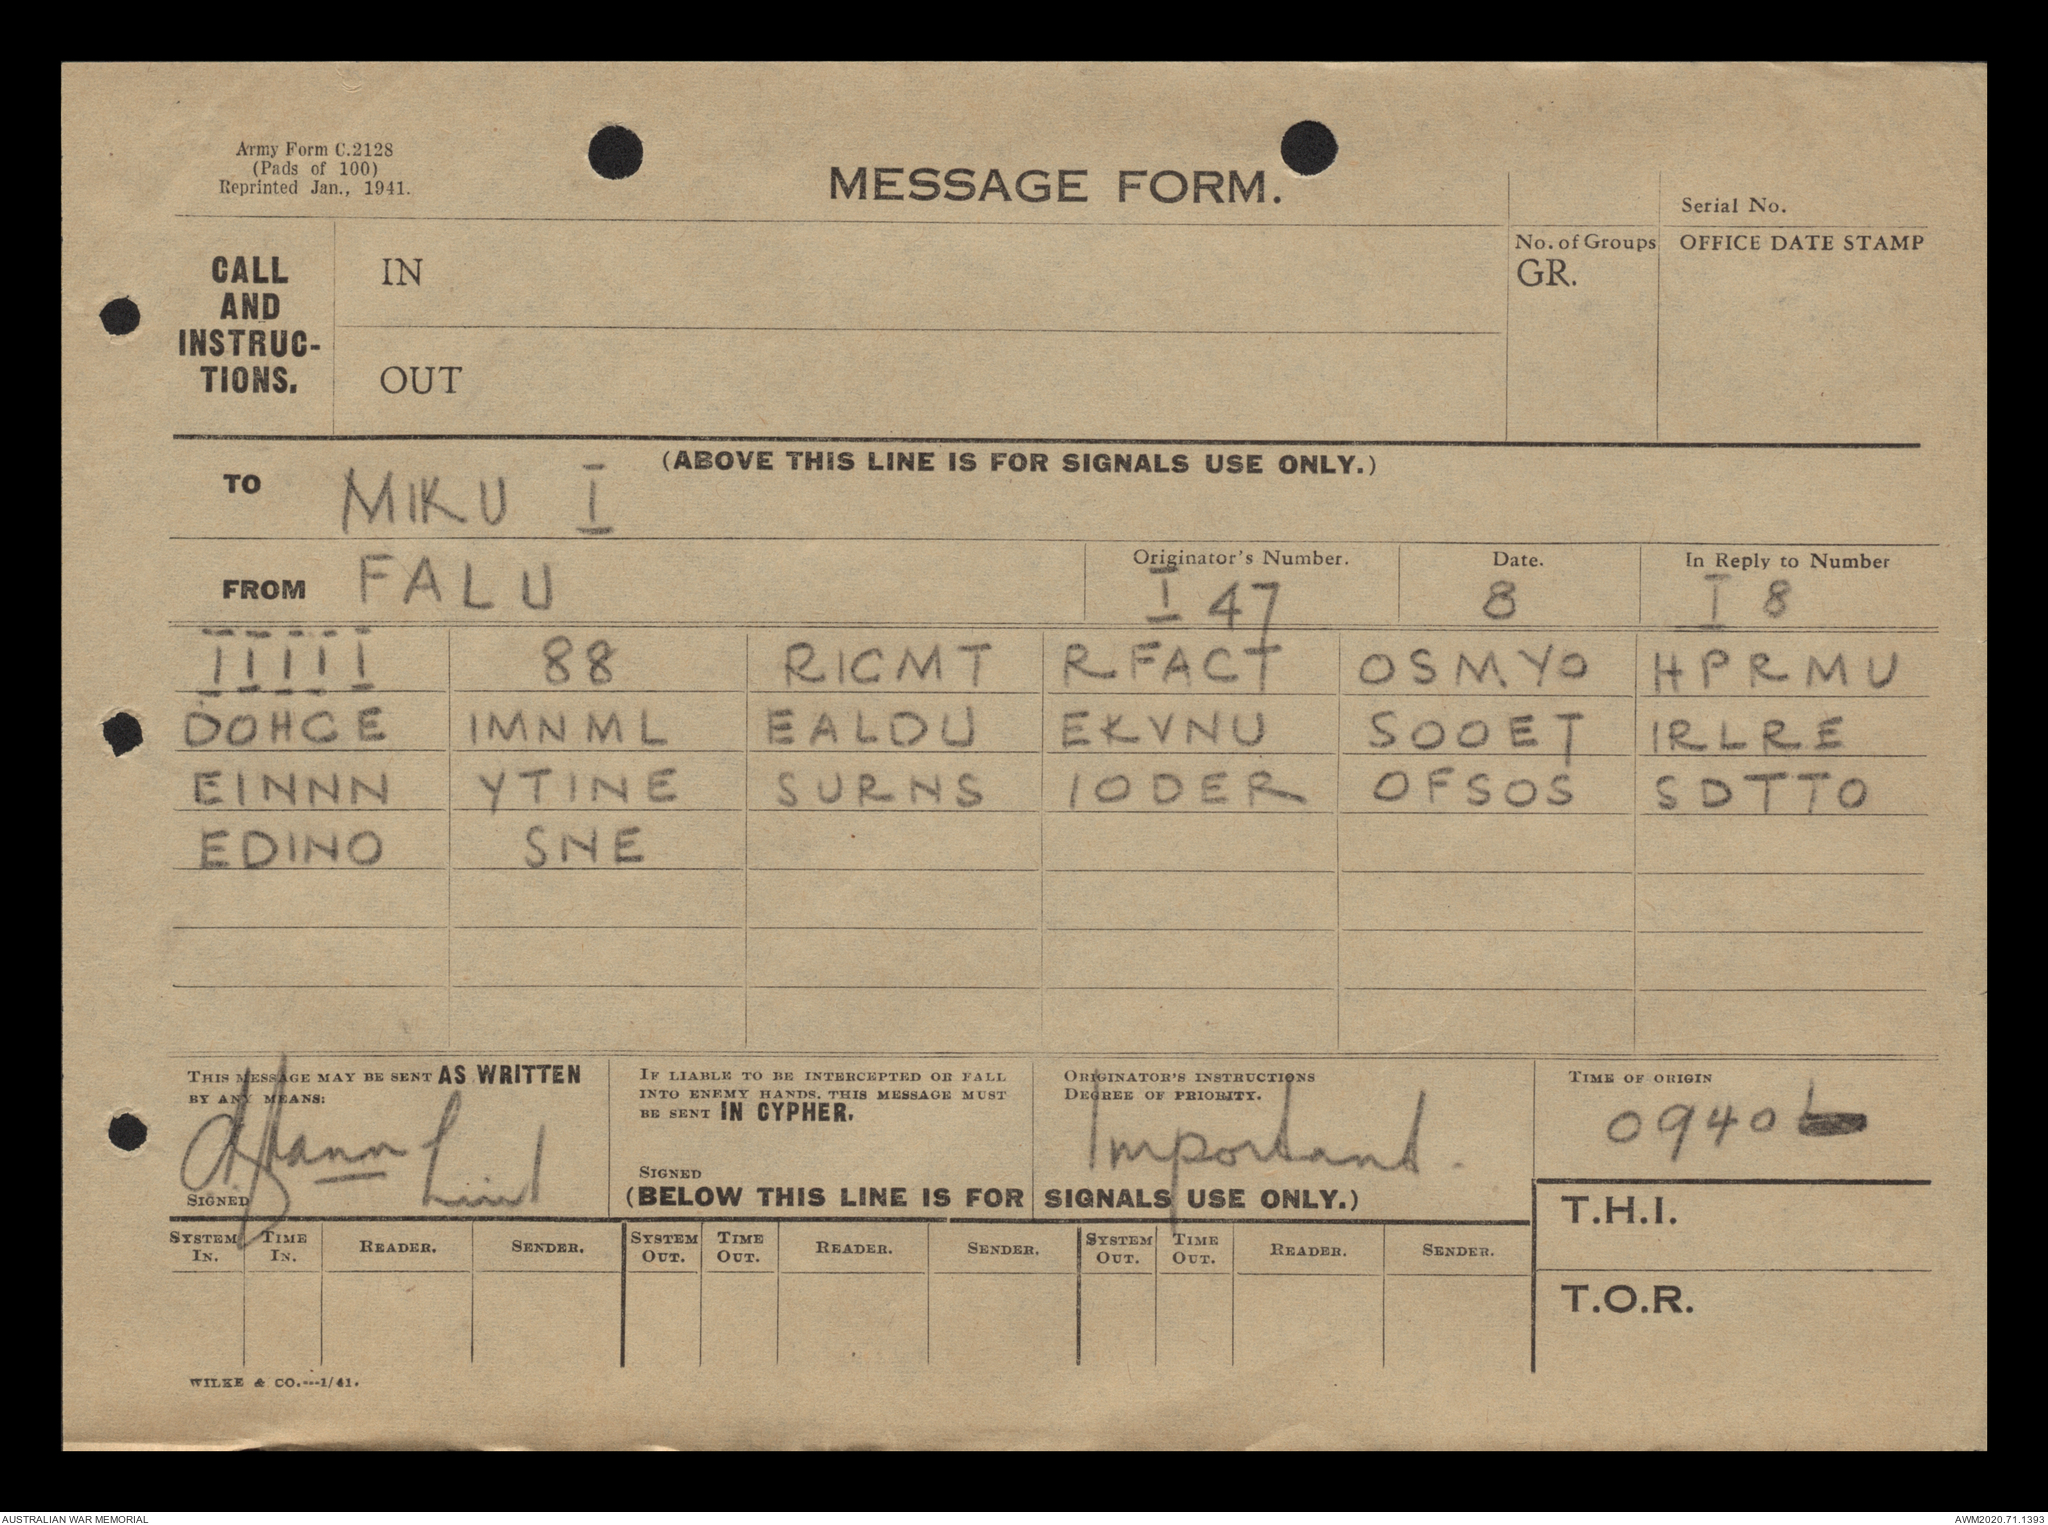 Army Form C.2128
(Pads of 100)
Reprinted Jan., 1941.
MESSAGE FORM.
Serial No.
CALL
AND
INSTRUC-
TIONS.
IN
OUT
No. of Groups
GR.
OFFICE DATE STAMP
(ABOVE THIS LINE IS FOR SIGNALS USE ONLY.)
TO MIKU I
FROM FALU
Originator's Number.
I 47
Date.
8
In Reply to Number
I 8
I I I I I 88 RICMT RFACT OSMYO HPRMU
DOHCE IMNML EALDU EKVNU SOOET IRLRE
EINNN YTINE SURNS IODER OFSOS SDTTO
EDINO SNE
THIS MESSAGE MAY BE SENT AS WRITTEN
BY ANY MEANS:
SIGNED
IF LIABLE TO BE INTERCEPTED OR FALL
INTO ENEMY HANDS, THIS MESSAGE MUST
BE SENT IN CYPHER.
SIGNED
ORIGINATOR'S INSTRUCTIONS
DEGREE OF PRIORITY.
Important.
TIME OF ORIGIN
0940
(BELOW THIS LINE IS FOR SIGNALS USE ONLY.)
T.H.I.
SYSTEM IN. TIME IN. READER. SENDER. SYSTEM OUT. TIME OUT. READER. SENDER. SYSTEM OUT. TIME OUT. READER. SENDER.
T.O.R.
WILKE & CO.---1/41.
AUSTRALIAN WAR MEMORIAL
AWM2020.71.1393